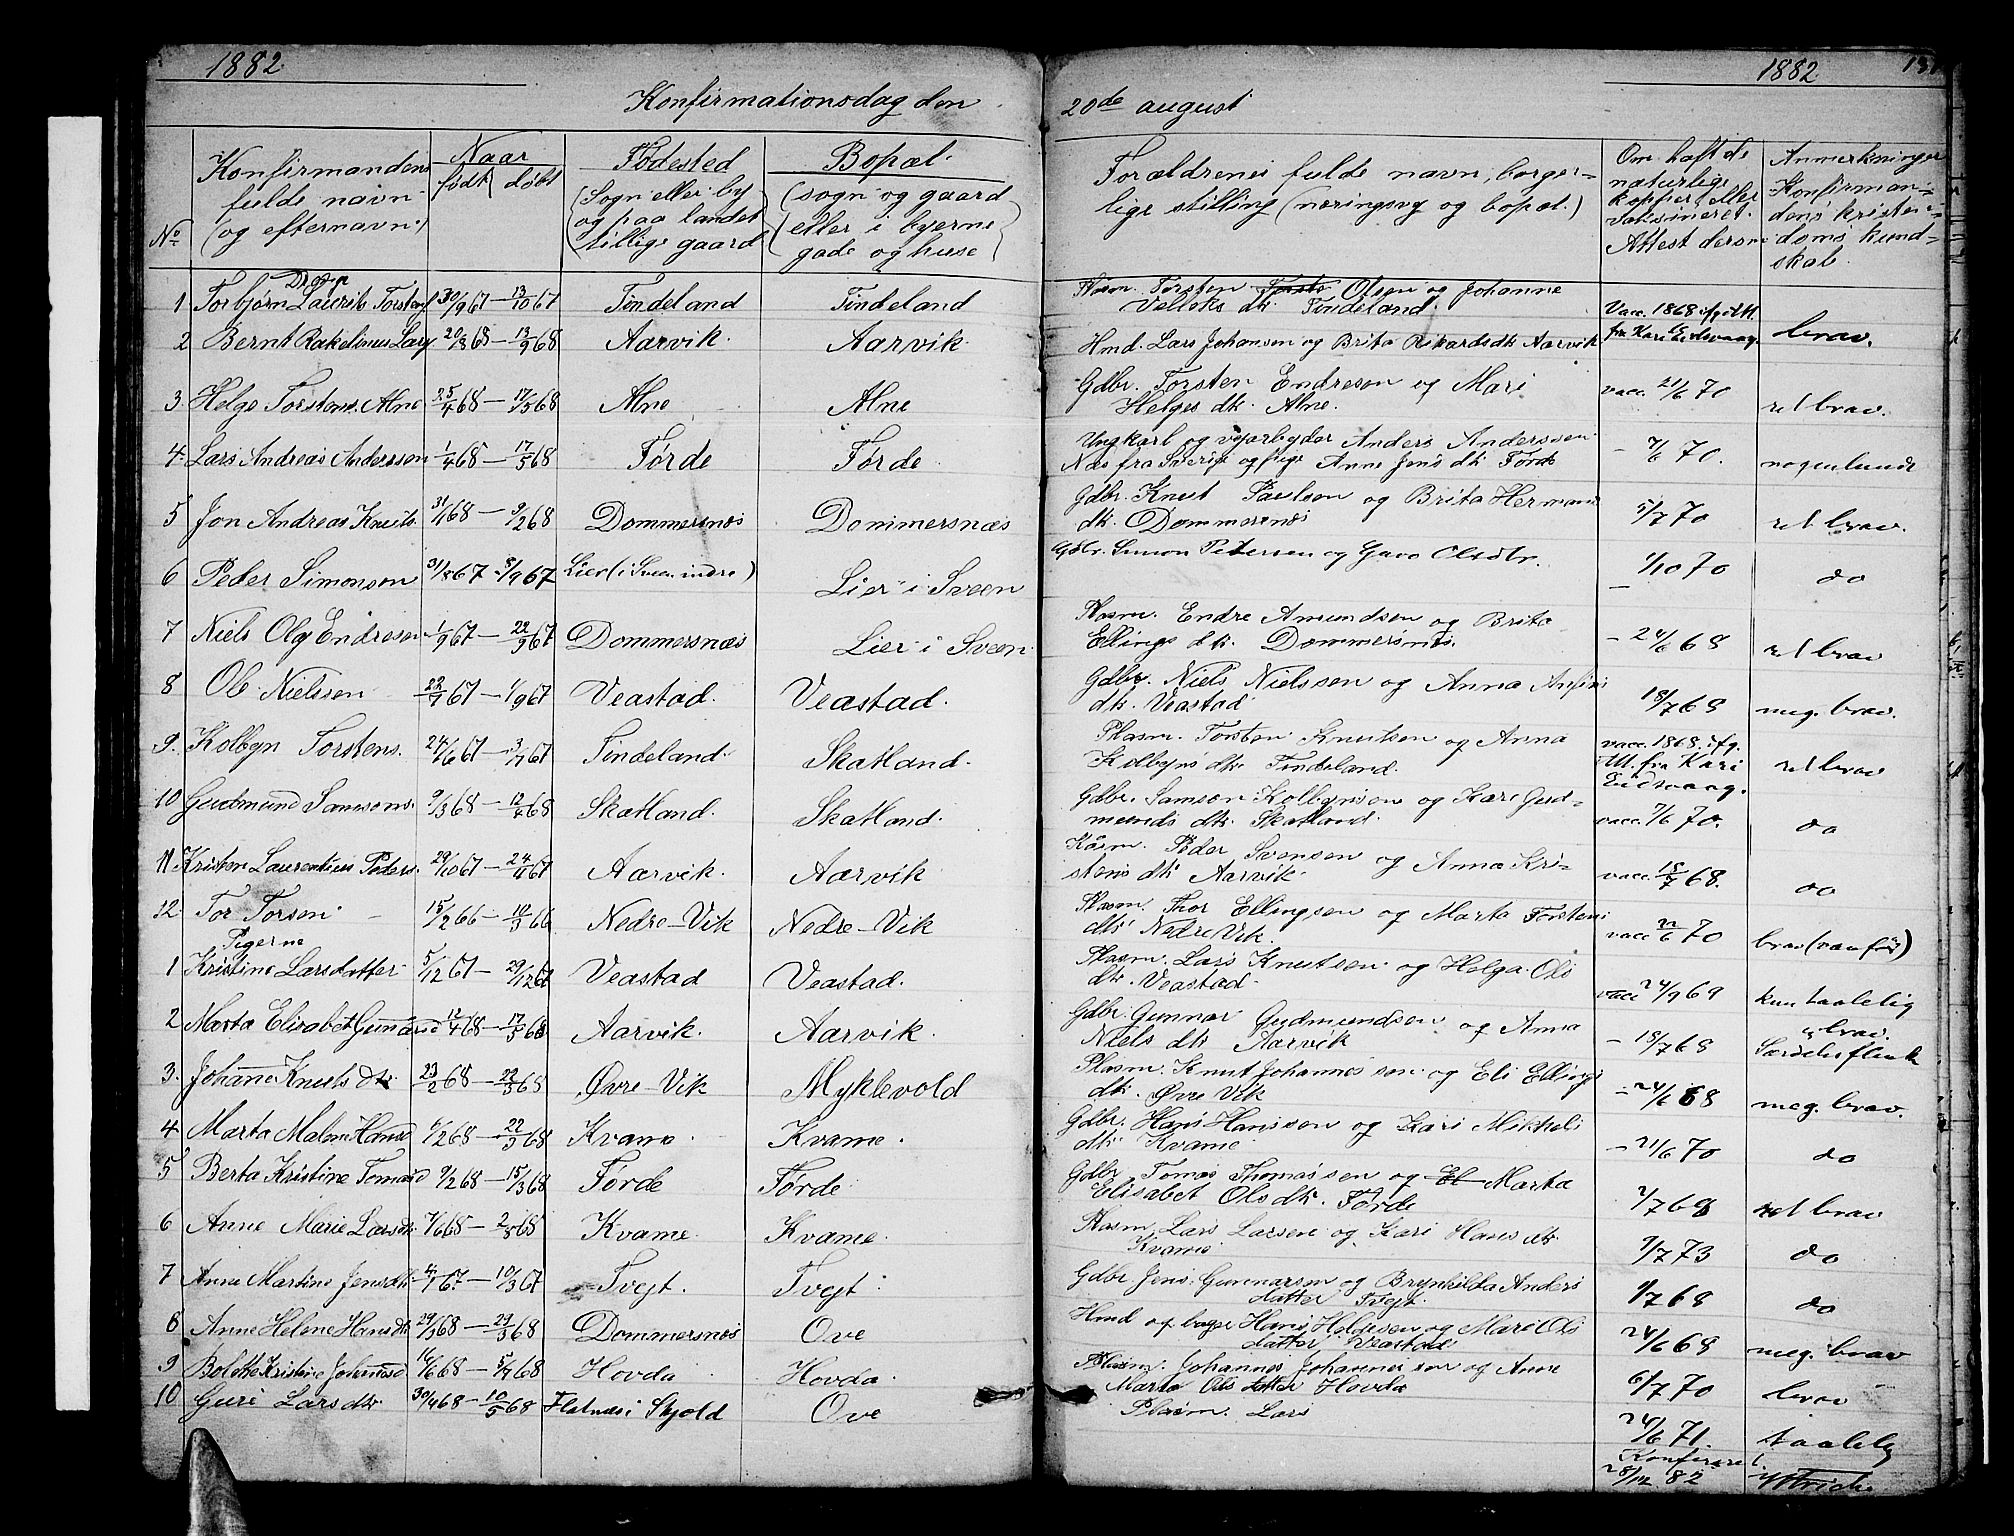 1882
Konfirmationsdag den
No
Konfirmandens
fulde navn
(og efternavn)
Naar
født
døbt
Fødested
(Sogn eller by
og paa landet
tillige gaard)
Bopæl.
(sogn og gaard
eller i byerne
gade og huse)
Drenge
1 Torbjørn Laurits Torstens 30/9 67 — 13/10 67 Tindeland Tindeland
2 Bernt Rakelinus Lars 20/8 68 — 13/9 68 Aarvik. Aarvik.
3 Helge Torstens. Alne 25/4 68 — 17/5 68 Alne Alne
4. Lars Andreas Anderssen 1/4 68 — 17/5 68 Førde Førde
5 Jon Andreas Knuts. 31/1 68 — 9/2 68 Dommersnæs Dommersnæs
6 Peder Simonsen 31/8 67 - 8/9 67 Lier (i Sveen indre) Lier i Sveen
7 Niels Olaj Endresen 1/9 67 — 22/9 67 Dommersnæs Lier i Sveen
8 Ole Nielssen 22/7 67 — 1/9 67 Veastad. Veastad.
9. Kolbyn Torstens. 24/6 67 — 67 Tindeland. Skatland.
10 Gudmund Samsons. 9/3 68 — 12/4 68 Skatland. Skatland.
11 Kristen Laurentius Peders. 29/10 67 — 24/4 67 Aarvik. Aarvik
12 Tor Torsen 15/2 66 — 18/3 66 Nedre-Vik Nedre-Vik
Pigerne
1 Kristine Larsdatter 5/12 67 — 29/12 67 Veastad Veastad.
2 Marta Elisabet Gunnarsd 12/4 68 — 17/5 68 Aarvik. Aarvik.
3. Johanne Knuts dtr 23/2 68 — 22/3 68 Øvre-Vik Myklevold
4. Marta Malene Hansd /2 68 — 22/3 68 Kvame. Kvame.
5 Berta Kristine Tomasd 9/2 68 — 15/3 68 Førde Førde
6 Anne Marie Larsdtr 7/6 68 — 2/8 68 Kvame. Kvame.
7 Anne Martine Jensdtr 67. — 10/3 67 Tvejt. Tvejt.
8 Anne Helene Hansdtr 29/3 68 — 29/3 68 Dommersnæs Ove
9 Bolette Kristine Johannesd 16/6 68 — 5/7 68 Hovda Hovda.
10 Guri Larsdtr 30/4 68 — 10/5 68 Flatnæs i Skjold Ove
1882 131
20de august
Forældrenes fulde navn, borger-
lige stilling (næringsvej og bopæl.)
Om haft de
naturlige
kopper eller
vaksineret.
Attest derom
Anmerkninger
Konfirman-
dens kristen-
doms kund-
skab.
Husm. Torsten Olsen og Johanne
Velleks dtr. Tindeland.
Vacc. 1868 ifg. att.
fra Kari Eidsvaag.
Hmd. Lars Johansen og Brita Rikardsdtr Aarvik brav.
Gdbr. Torsten Endresen og Mari
Helges dtr. Alne. vacc. 21/6 70 ret brav.
Ungkarl og vejarbejder Anders Anderssen
Næs fra Sverige og pige Anne Jens dtr Førde - 7/6 70. nogenlunde
Gdbr. Knut Paulsen og Brita Hermans
dtr. Dommersnæs 5/7 70 ret brav.
Gdbr. Simon Petersen og Guro Olsdtr. - 1/10 70 do
Husm. Endre Amundsen og Brita
Ellings dtr. Dommersnæs. - 24/6 68 ret brav
Gdbr. Niels Nielssen og Anna Anfins
dtr. Veastad 18/7 68 meg. brav.
Plasm. Torsten Knutsen og Anna
Kolbyns dtr. Tindeland.
vacc. 1868. ifg.
att. fra Kari
Eidsvaag.
ret brav
Gdbr. Samson Kolbynsen og Kari Gud-
munds dtr. Skatland. vacc. 7/6 70. do
Husm. Peder Svensen og Anna Kri-
stens dtr Aarvik. vacc. 18/7 68. do
Plasm. Thor Ellingsen og Marta Torstens
dtr. Nedre Vik. vacc 22/6 70 brav (vanfør)
Plasm. Lars Knutsen og Helga Ols
dtr. Veastad. vacc 24/9 69 kun taalelig
Gdbr. Gunnar Gudmundsen og Anna
Niels dtr. Aarvik - 18/7 68 brav.
Særdeles flink
Plasm. Knut Johannessen og Eli Ellings
dtr. Øvre Vik - 24/6 68 meg. brav.
Gdbr. Hans Hanssen og Kari Mikkels
dtr. Kvame - 21/6 70 do
Gdbr. Tomas Thomassen og El Marta
Elisabet Ols dtr. Førde /7 68 ret brav
Plasm Lars Larsen og Kari Hans dtr
Kvame 9/7 73 do
Gdbr Jens Gunnarsen og Brynhilda Anders
datter Tvejt. /7 68 do
Hmd og bager Hans Helgesen og Mari Ols
datter, Veastad 24/6 68 meg. brav
Plasm. Johannes Johannessen og Anne
Marta Ols datter Hovda 6/7 70 brav
Plasm. Lars 24/6 71. taalelig
Konfirmert
28/12. 82